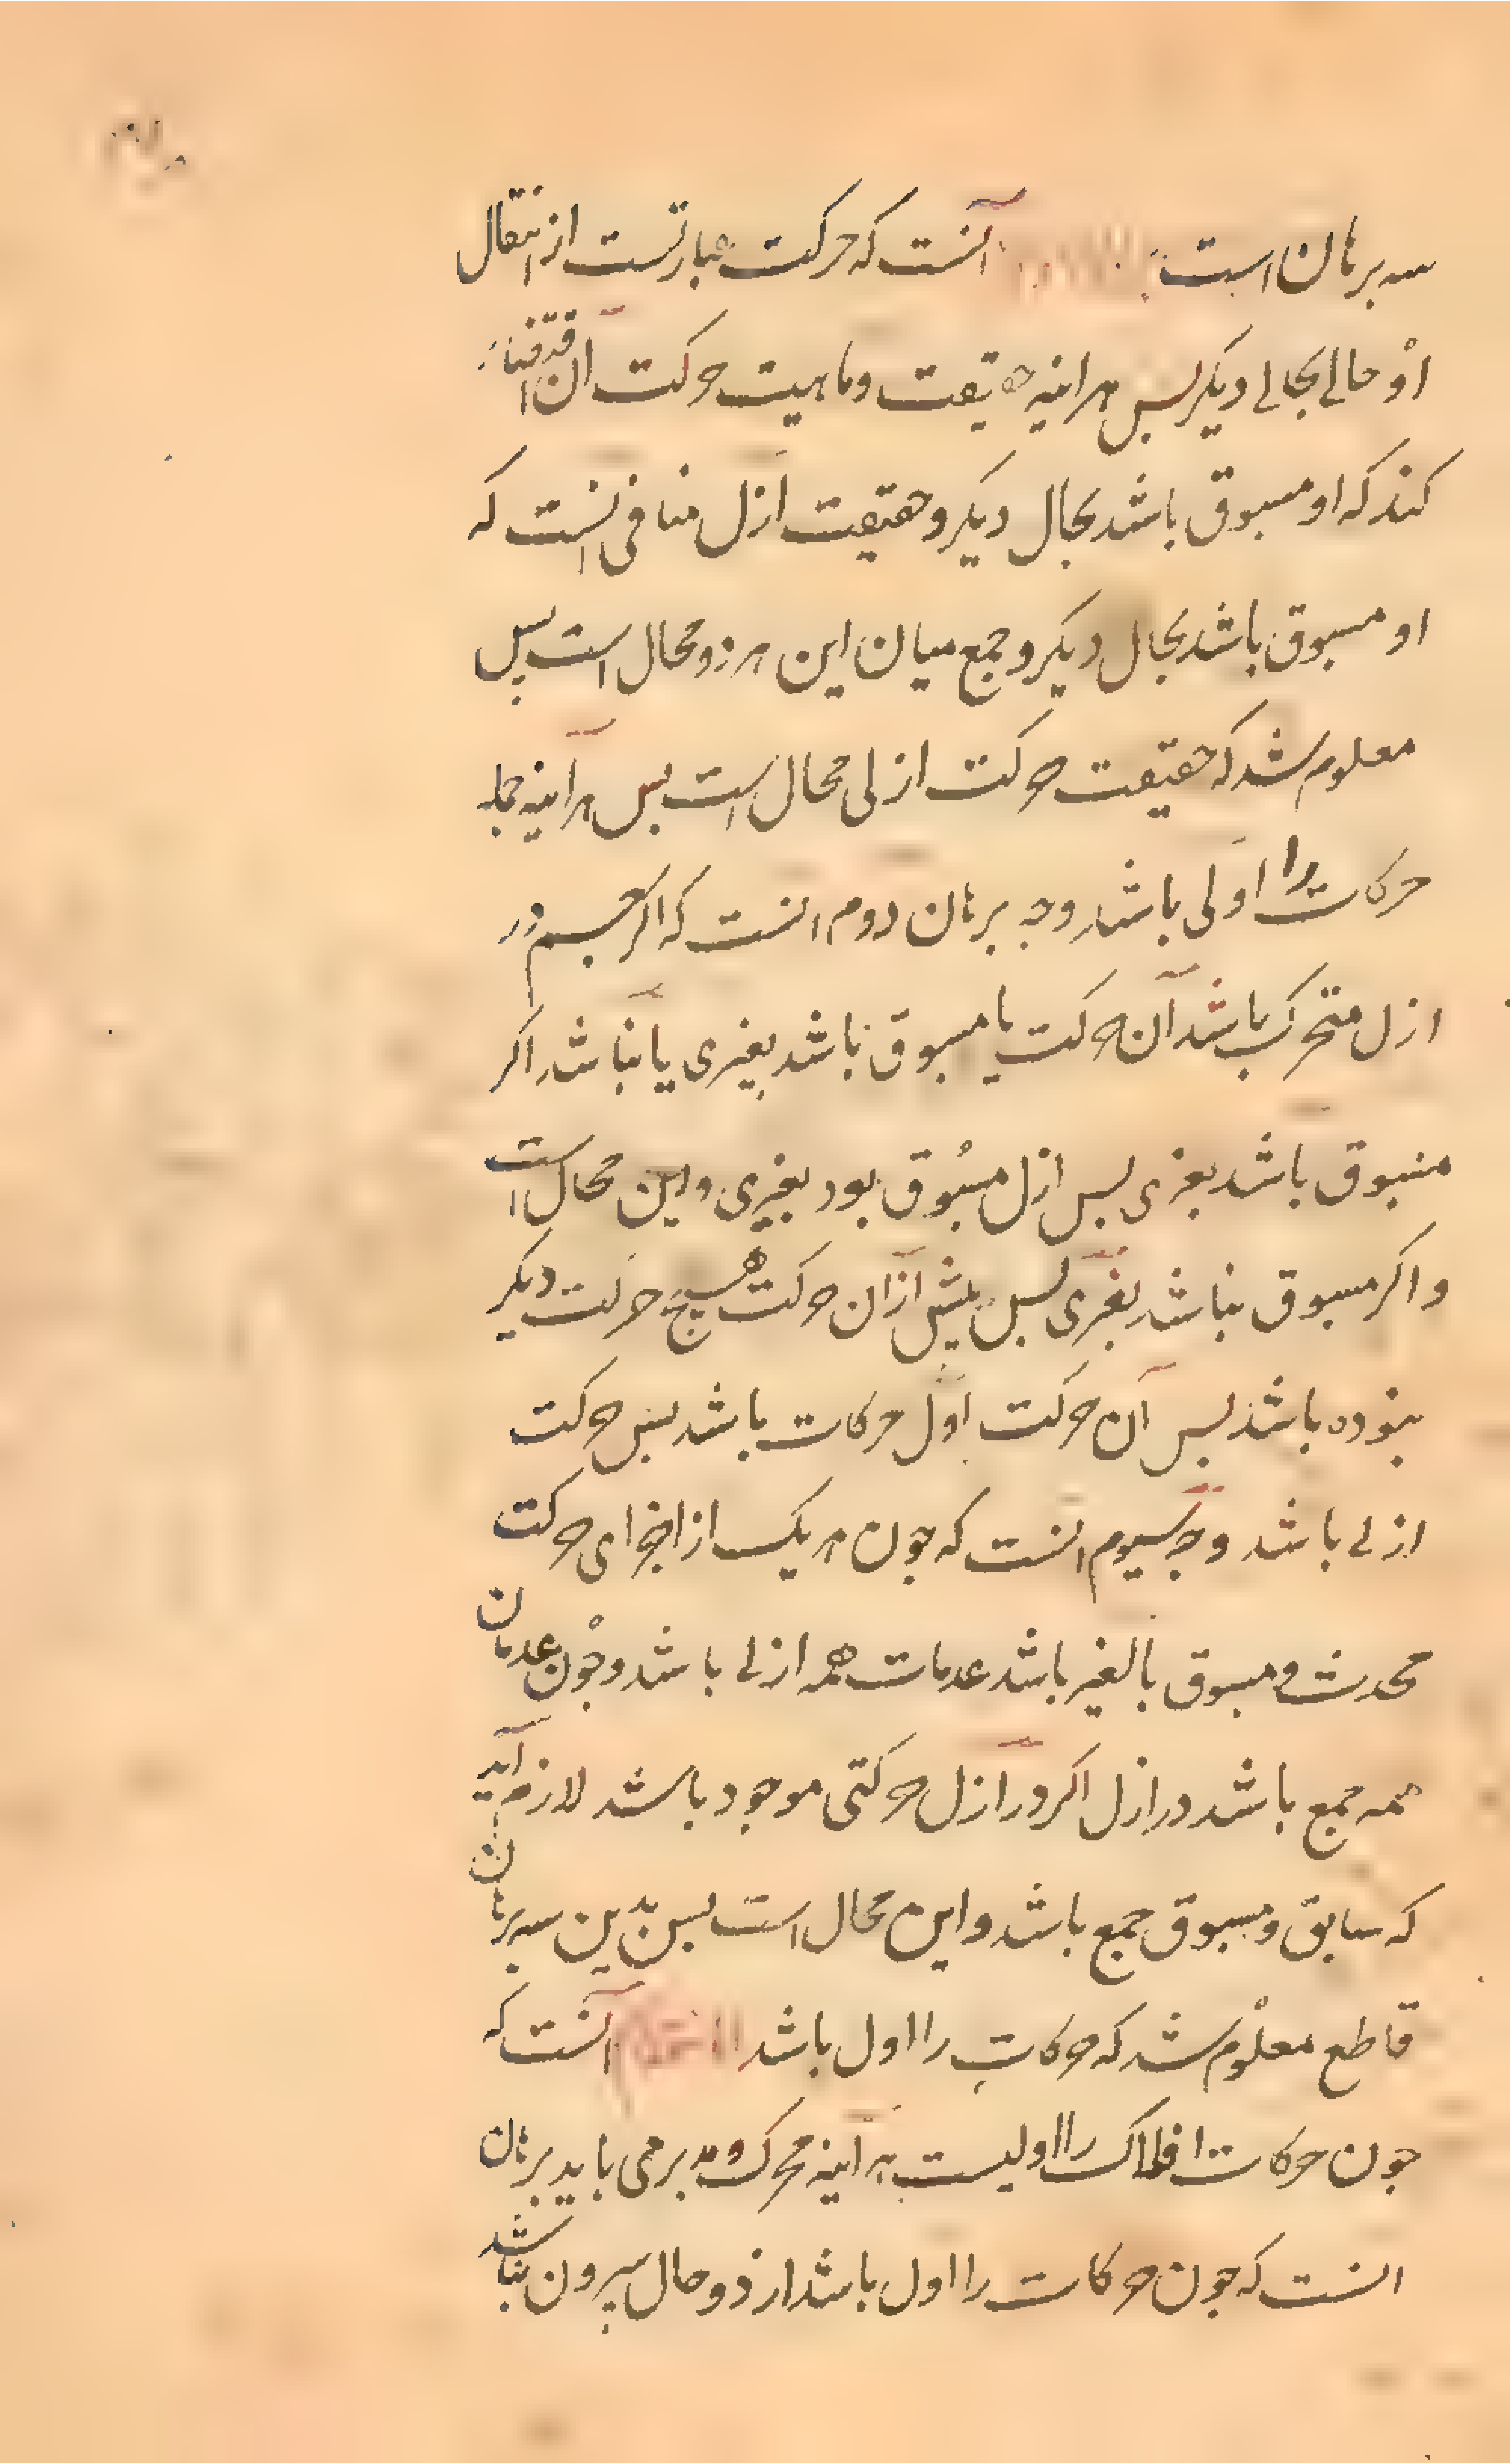 سه برهان است آنست که حرکت عبارتست از انتقال
از حالے بحالے دیکر بس هراینه حقیقت وماهیت حرکت آن اقتضاء
کند که او مسبوق باشد بحال دیکر و حقیقت ازل منافی انست که
او مسبوق باشد بحال دیکر و جمع میان این هر دو محال است بس
معلوم شد که حقیقت حرکت ازلی محال است بس هرآینه جمله
حرکات را اولی باشد وجه برهان دوم انست که اکر جسم در
ازل متحرک باشد آن حرکت یا مسبوق باشد بغیری یا نباشد اکر
مسبوق باشد بغیری بس ازل مسبوق بود بغیری و این محال است
و اکر مسبوق نباشد بغیری بس بیش ازان حرکت هیچ حرکت دیکر
نبوده باشد بس آن حرکت اول حرکات باشد بس حرکت
ازلے باشد وجه سیوم انست که جون هر یک از اجزای حرکت
محدث و مسبوق بالغیر باشد عدمات همه ازلے باشد و جون عدمات
همه جمع باشد در ازل اکر در ازل حرکتی موجود باشد لازم آید
که سابق و مسبوق جمع باشد و این محال است بس بدین سه برهان
قاطع معلوم شد که حرکات را اول باشد آنست که
جون حرکات افلاک را اولیست هر اینه محرک و مدبر می باید برهان
انست که جون حرکات را اول باشد از دو حال بیرون نباشد